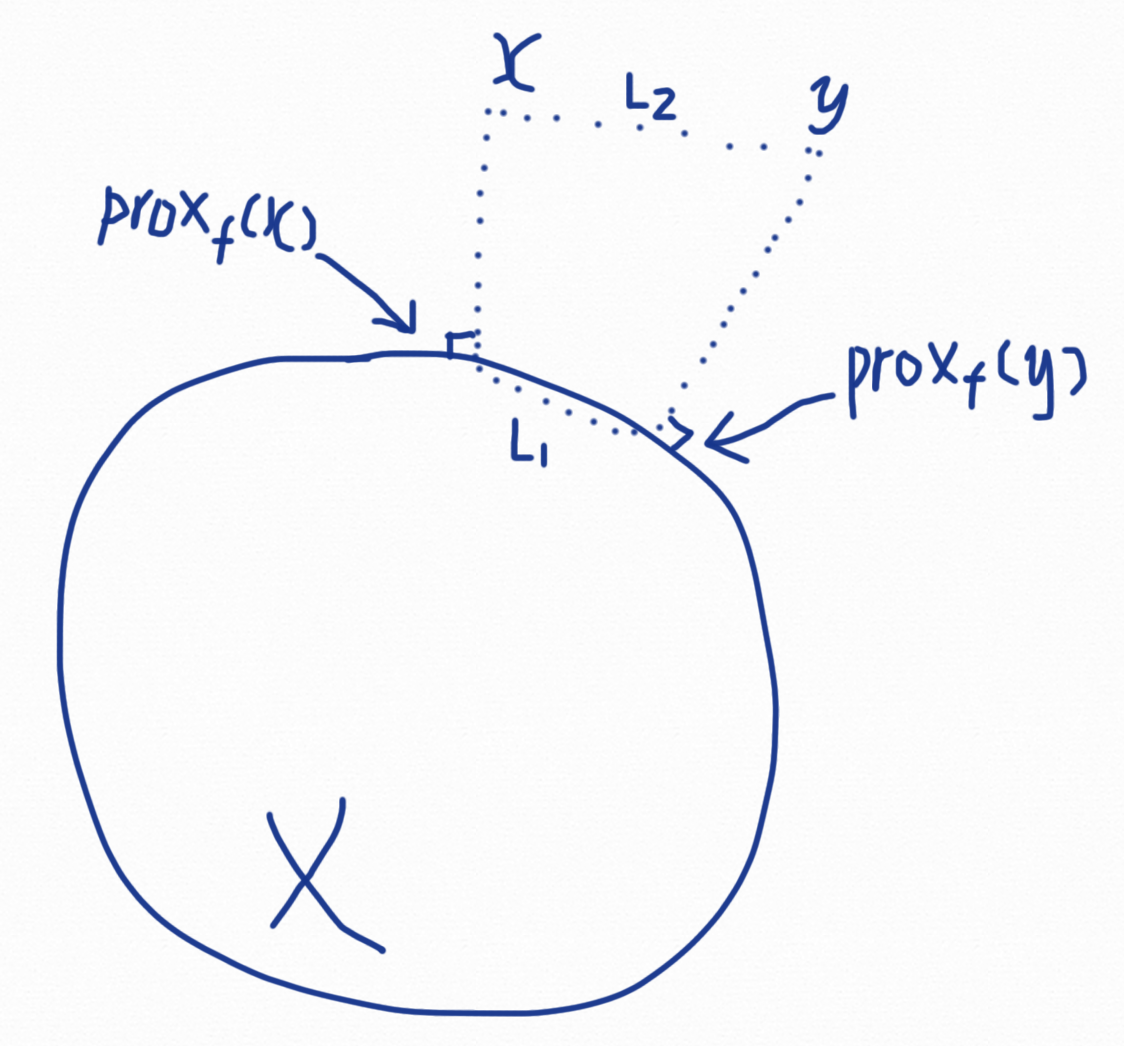 x
L2
y
prox_f(x)
prox_f(y)
L1
X